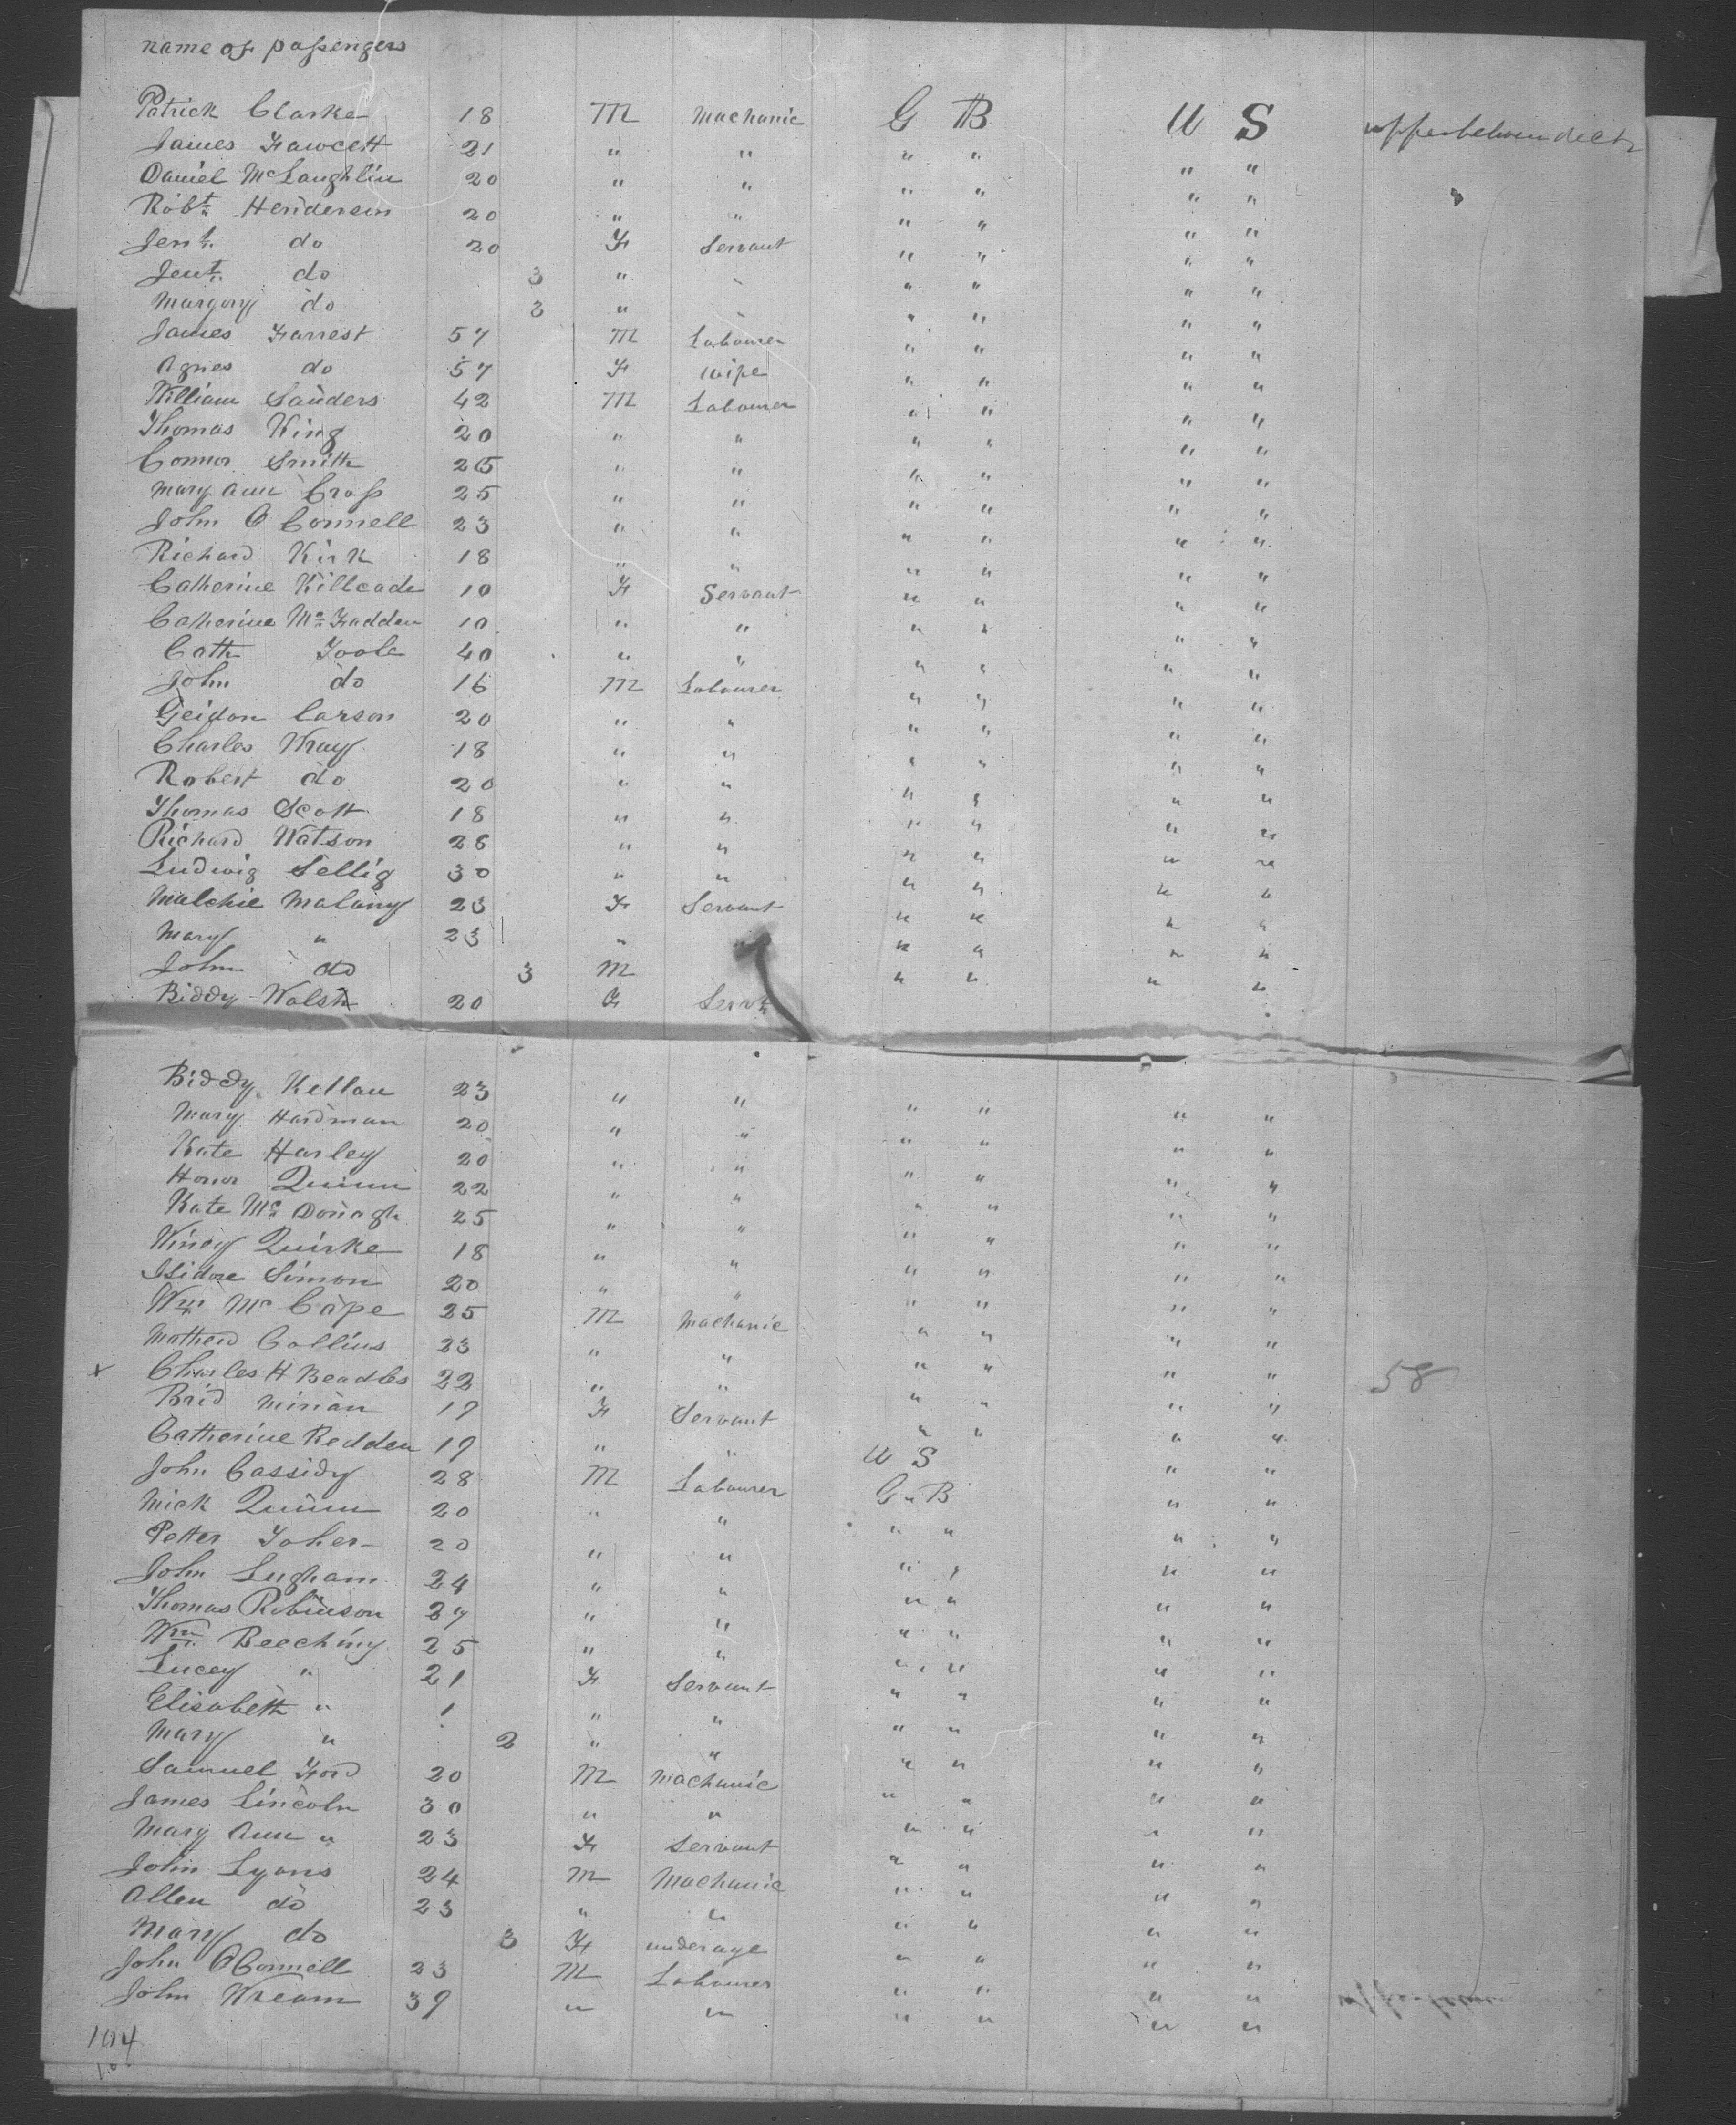 name of passengers
Patrick Clarke 18 M Machanic G B U S upper between deck
James Fawcett 21 " " " " " "
Daniel McLaughlin 20 " " " " " "
Robt Henderson 20 " " " " " "
Jent. do 20 F Servant " " " "
Jent. do 3 " " " " "
Margory do 2 " " " " "
James Forrest 57 M Labourer " " " "
Agnes do 57 F wife " " " "
William Sanders 42 M Labourer " " " "
Thomas King 20 " " " " " "
Connor Smith 25 " " " " " "
Mary Ann Cross 25 " " " " " "
John O Connell 23 " " " " " "
Richard Kirk 18 " " " " " "
Catherine Killcade 10 F Servant " " " "
Catherine Mc Fadden 10 " " " " " "
Cath Toole 40 " " " " " "
John do 16 M Labourer " " " "
Geidon Carson 20 " " " " " "
Charles Wray 18 " " " " " "
Robert do 20 " " " " " "
Thomas Scott 18 " " " " " "
Richard Watson 26 " " " " " "
Ludwig Sellig 30 " " " " " "
Malchie Malany 23 F Servant " " " "
Mary " 23 " " " " " "
John do 3 M " " " "
Biddy Walsh 20 F Servt
Biddy Kellau 23 " " " " " "
Mary Hardman 20 " " " " " "
Kate Harley 20 " " " " " "
Honor Quinn 22 " " " " " "
Kate Mc Donagh 25 " " " " " "
Winey Quirke 18 " " " " " "
Isidore Simon 20 " " " " " "
Wm Mc Cape 25 M Machanic " " " "
Mathew Collins 23 " " " " " "
x Charles H Beadles 22 " " " " " " 58
Brid Minian 19 F Servant " " " "
Catherine Redden 19 " " U S " "
John Cassidy 28 M Labourer G " B " "
Mick Quinn 20 " " " " " "
Petter Toher 20 " " " " " "
John Lugham 24 " " " " " "
Thomas Robinson 27 " " " " " "
Wm Beeching 25 " " " " " "
Lucey " 21 F Servant " " " "
Elisabeth " 1 " " " " " "
Mary " 2 " " " " " "
Samuel Ford 20 M Machanic " " " "
James Lincoln 30 " " " " " "
Mary Ann " 23 F Servant " " " "
John Lyons 24 M Machanic " " " "
Allen do 23 " " " " " "
Mary do 3 F underage " " " "
John O Connell 23 M Labourer " " " "
John Wream 39 " " " " " "
104